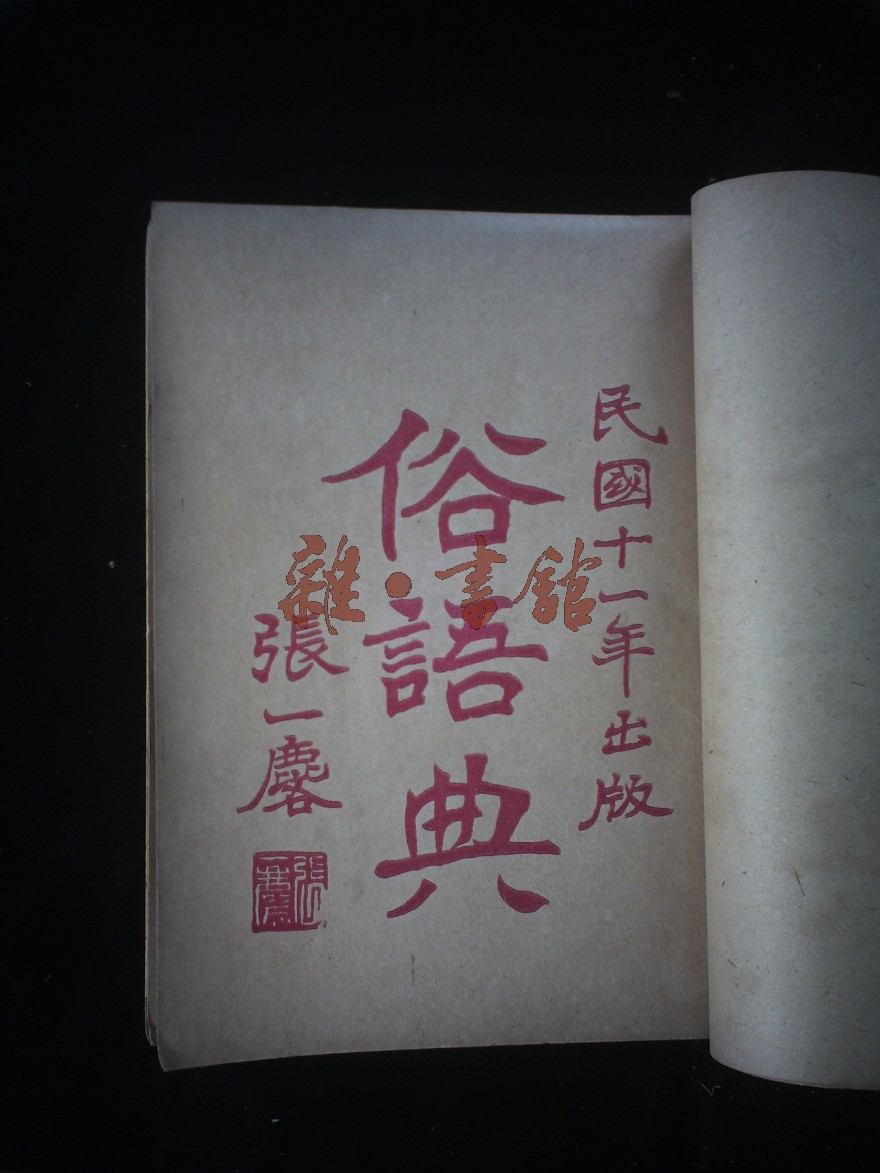 民國十一年出版
俗語典
張一麐
張一麐
雜·書館